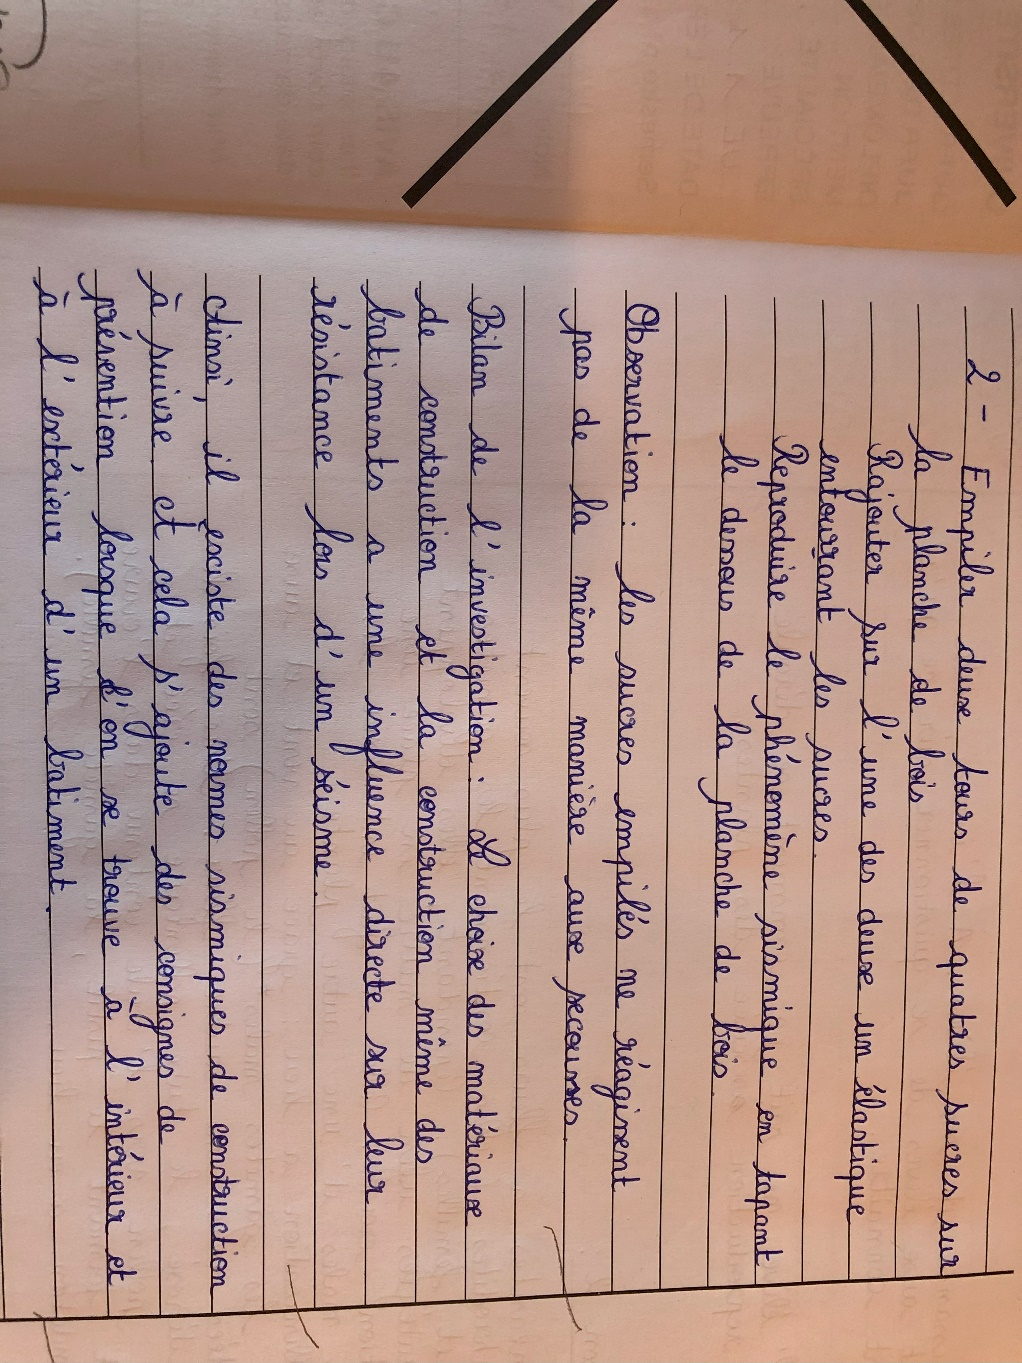 2 - Empiler deux tours de quatres sucres sur
la planche de bois
Rajouter sur l'une des deux un élastique
entourant les sucres.
Reproduire le phénomène sismique en tapant
le dessous de la planche de bois.
Observation : les sucres empilés ne réaginent
pas de la même manière aux secousses.
Bilan de l'investigation : Le choix des matériaux
de construction et la construction même des
batiments a une influence directe sur leur
résistance lors d'un séisme.
Ainsi, il existe des normes sismiques de construction
à suivre et cela s'ajoute des consignes de
présention lorsque l'on se trouve à l'intérieur et
à l'extérieur d'un batiment.